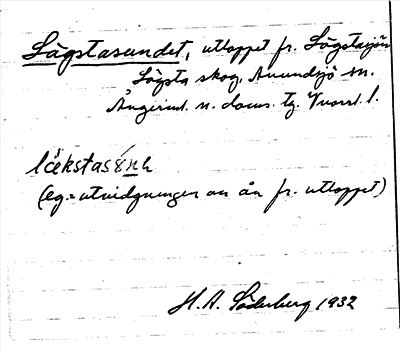 Lägstasundet, utloppet fr. Lägstasjön
Lägsta skog, Anundsjö sn.
Ångerml. n. doms. tg. Vnorrl. l.
(eg. = utvidgningen av ån fr. utloppet)
H. A. Söderberg 1932